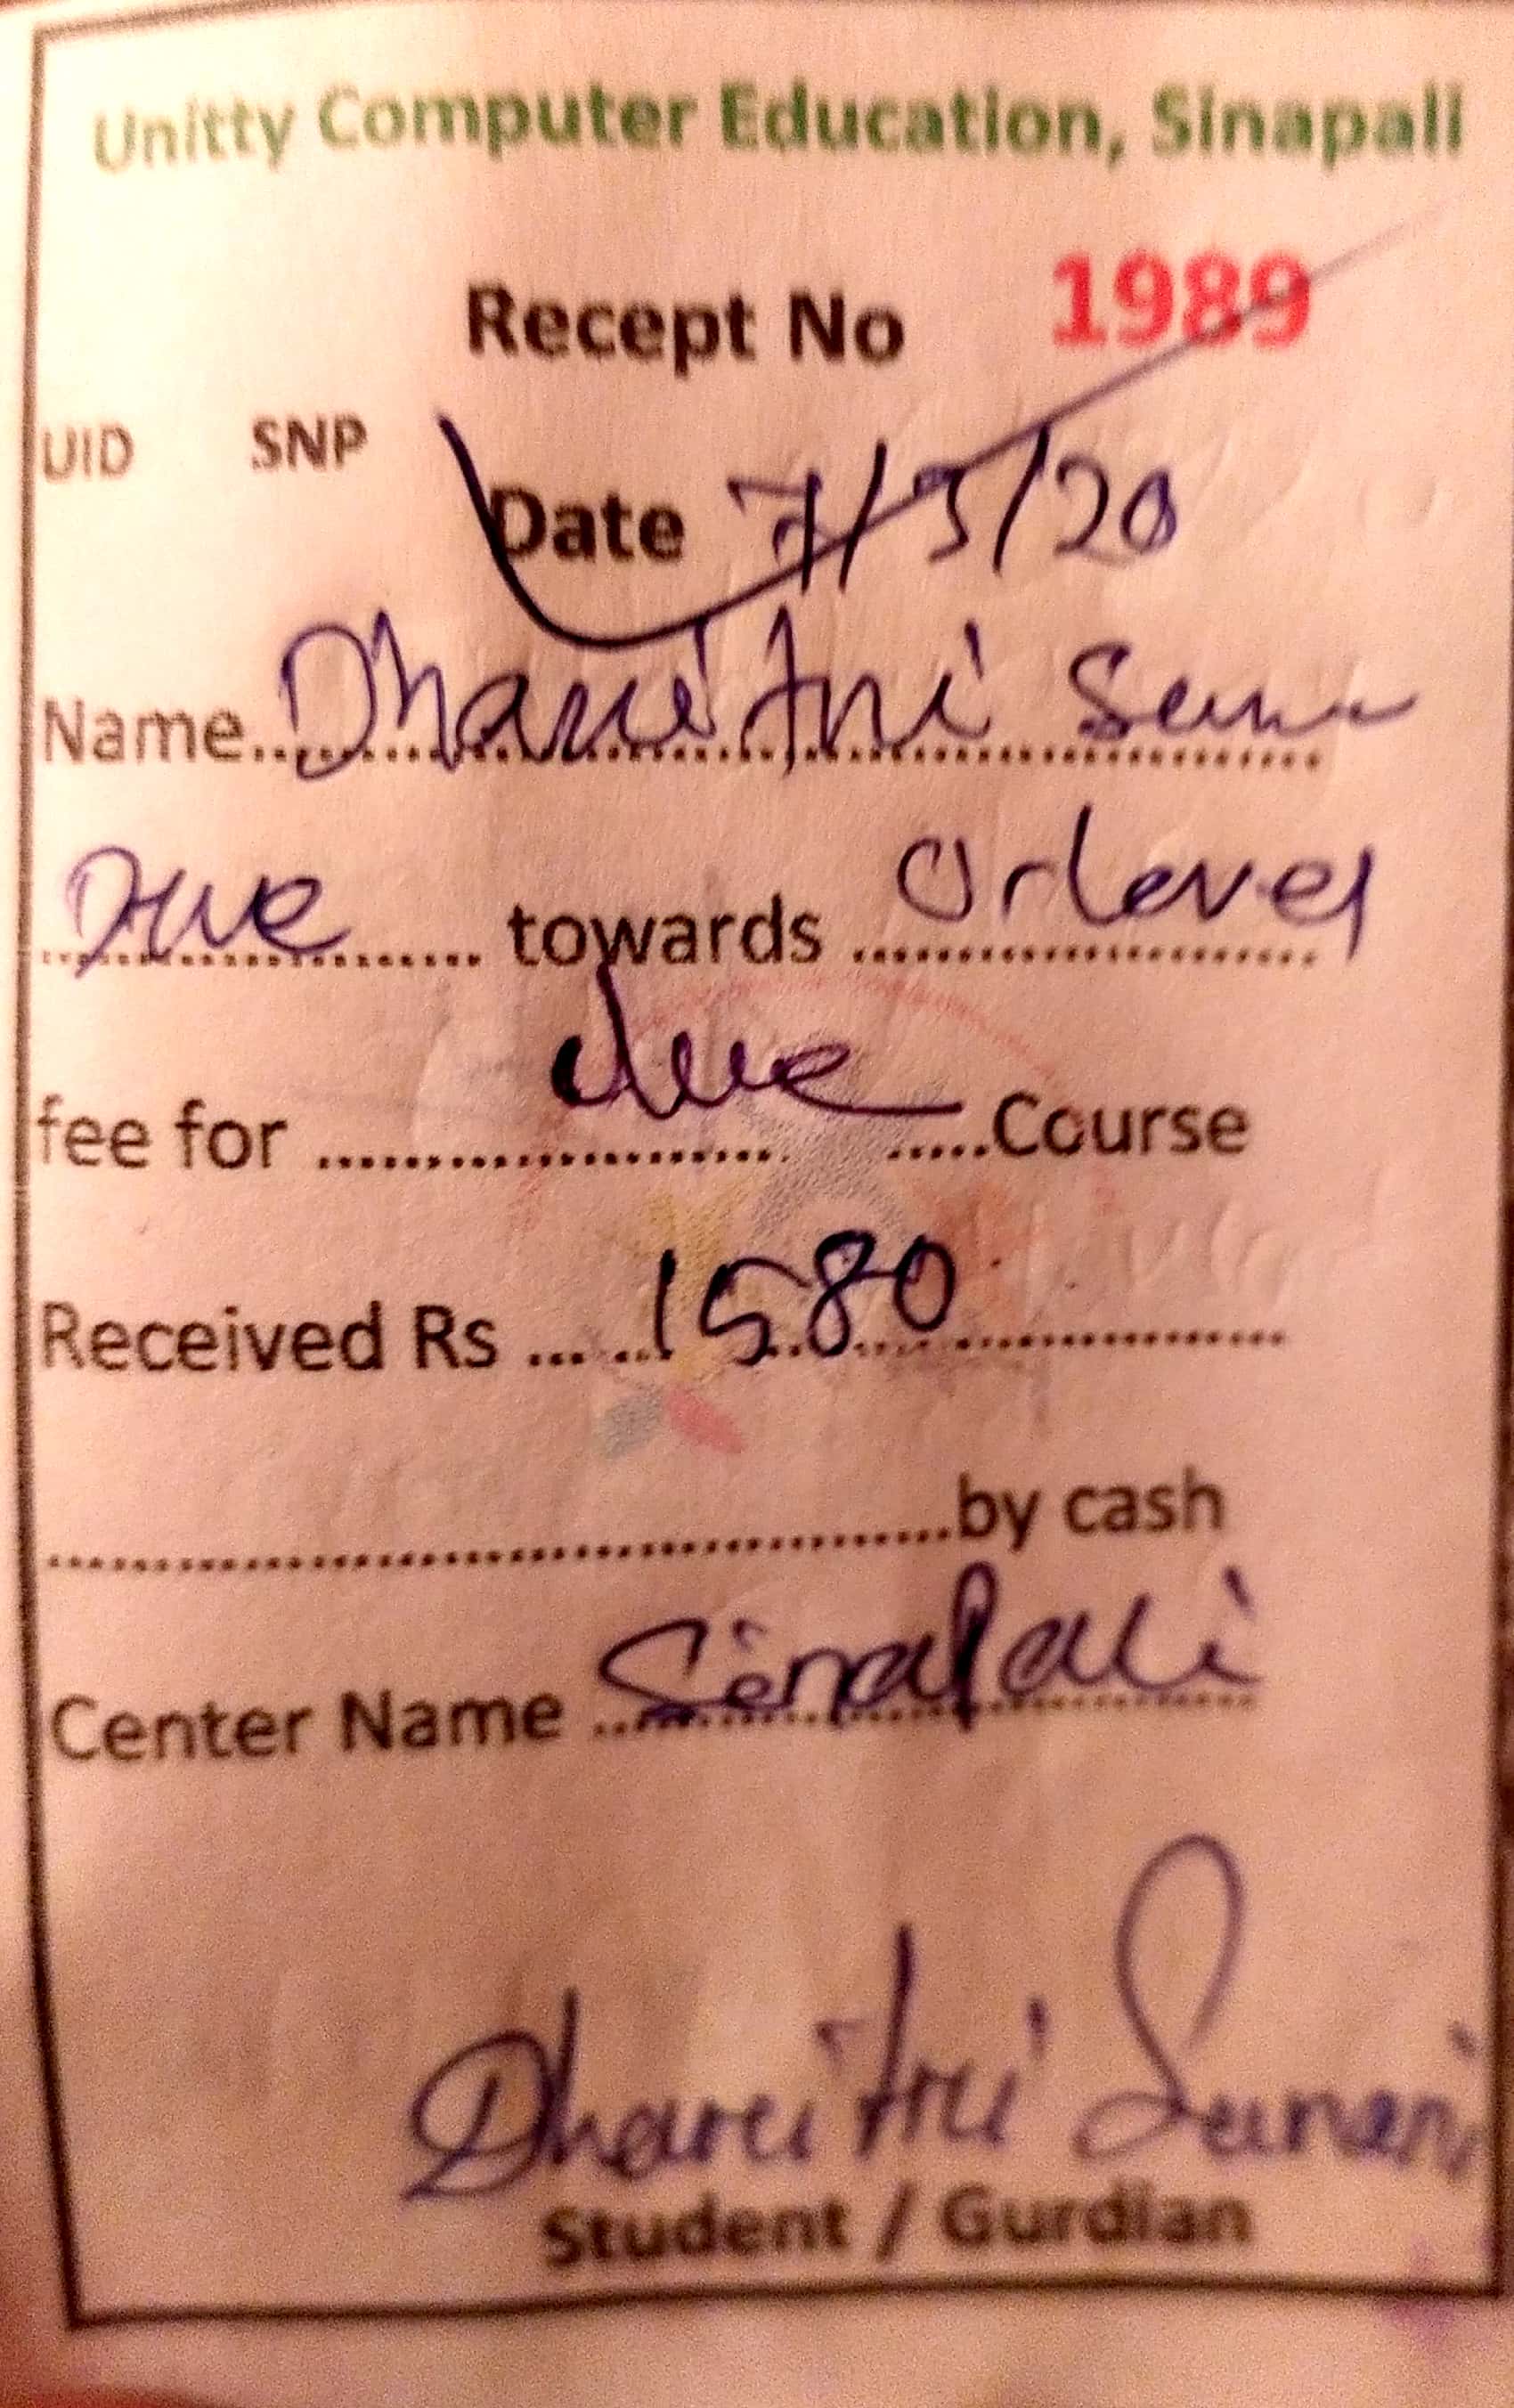 Unitty Computer Education, Sinapali
Recept No 1989
UID SNP
Date 7/3/20
Name Dharitri
Due towards O-level
fee for due Course
Received Rs 1580
by cash
Center Name Sinapali
Dharitri Sunani
Student / Gurdian